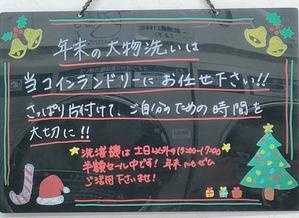 年末の大物洗いは
当コインランドリーにお任せ下さい!!
さっぱり片付けて、ご自分のための時間を
大切に!!
★洗濯機は土日以外の13:00~17:00
半額セール中です! 年末もぜひ
ご活用下さいませ!